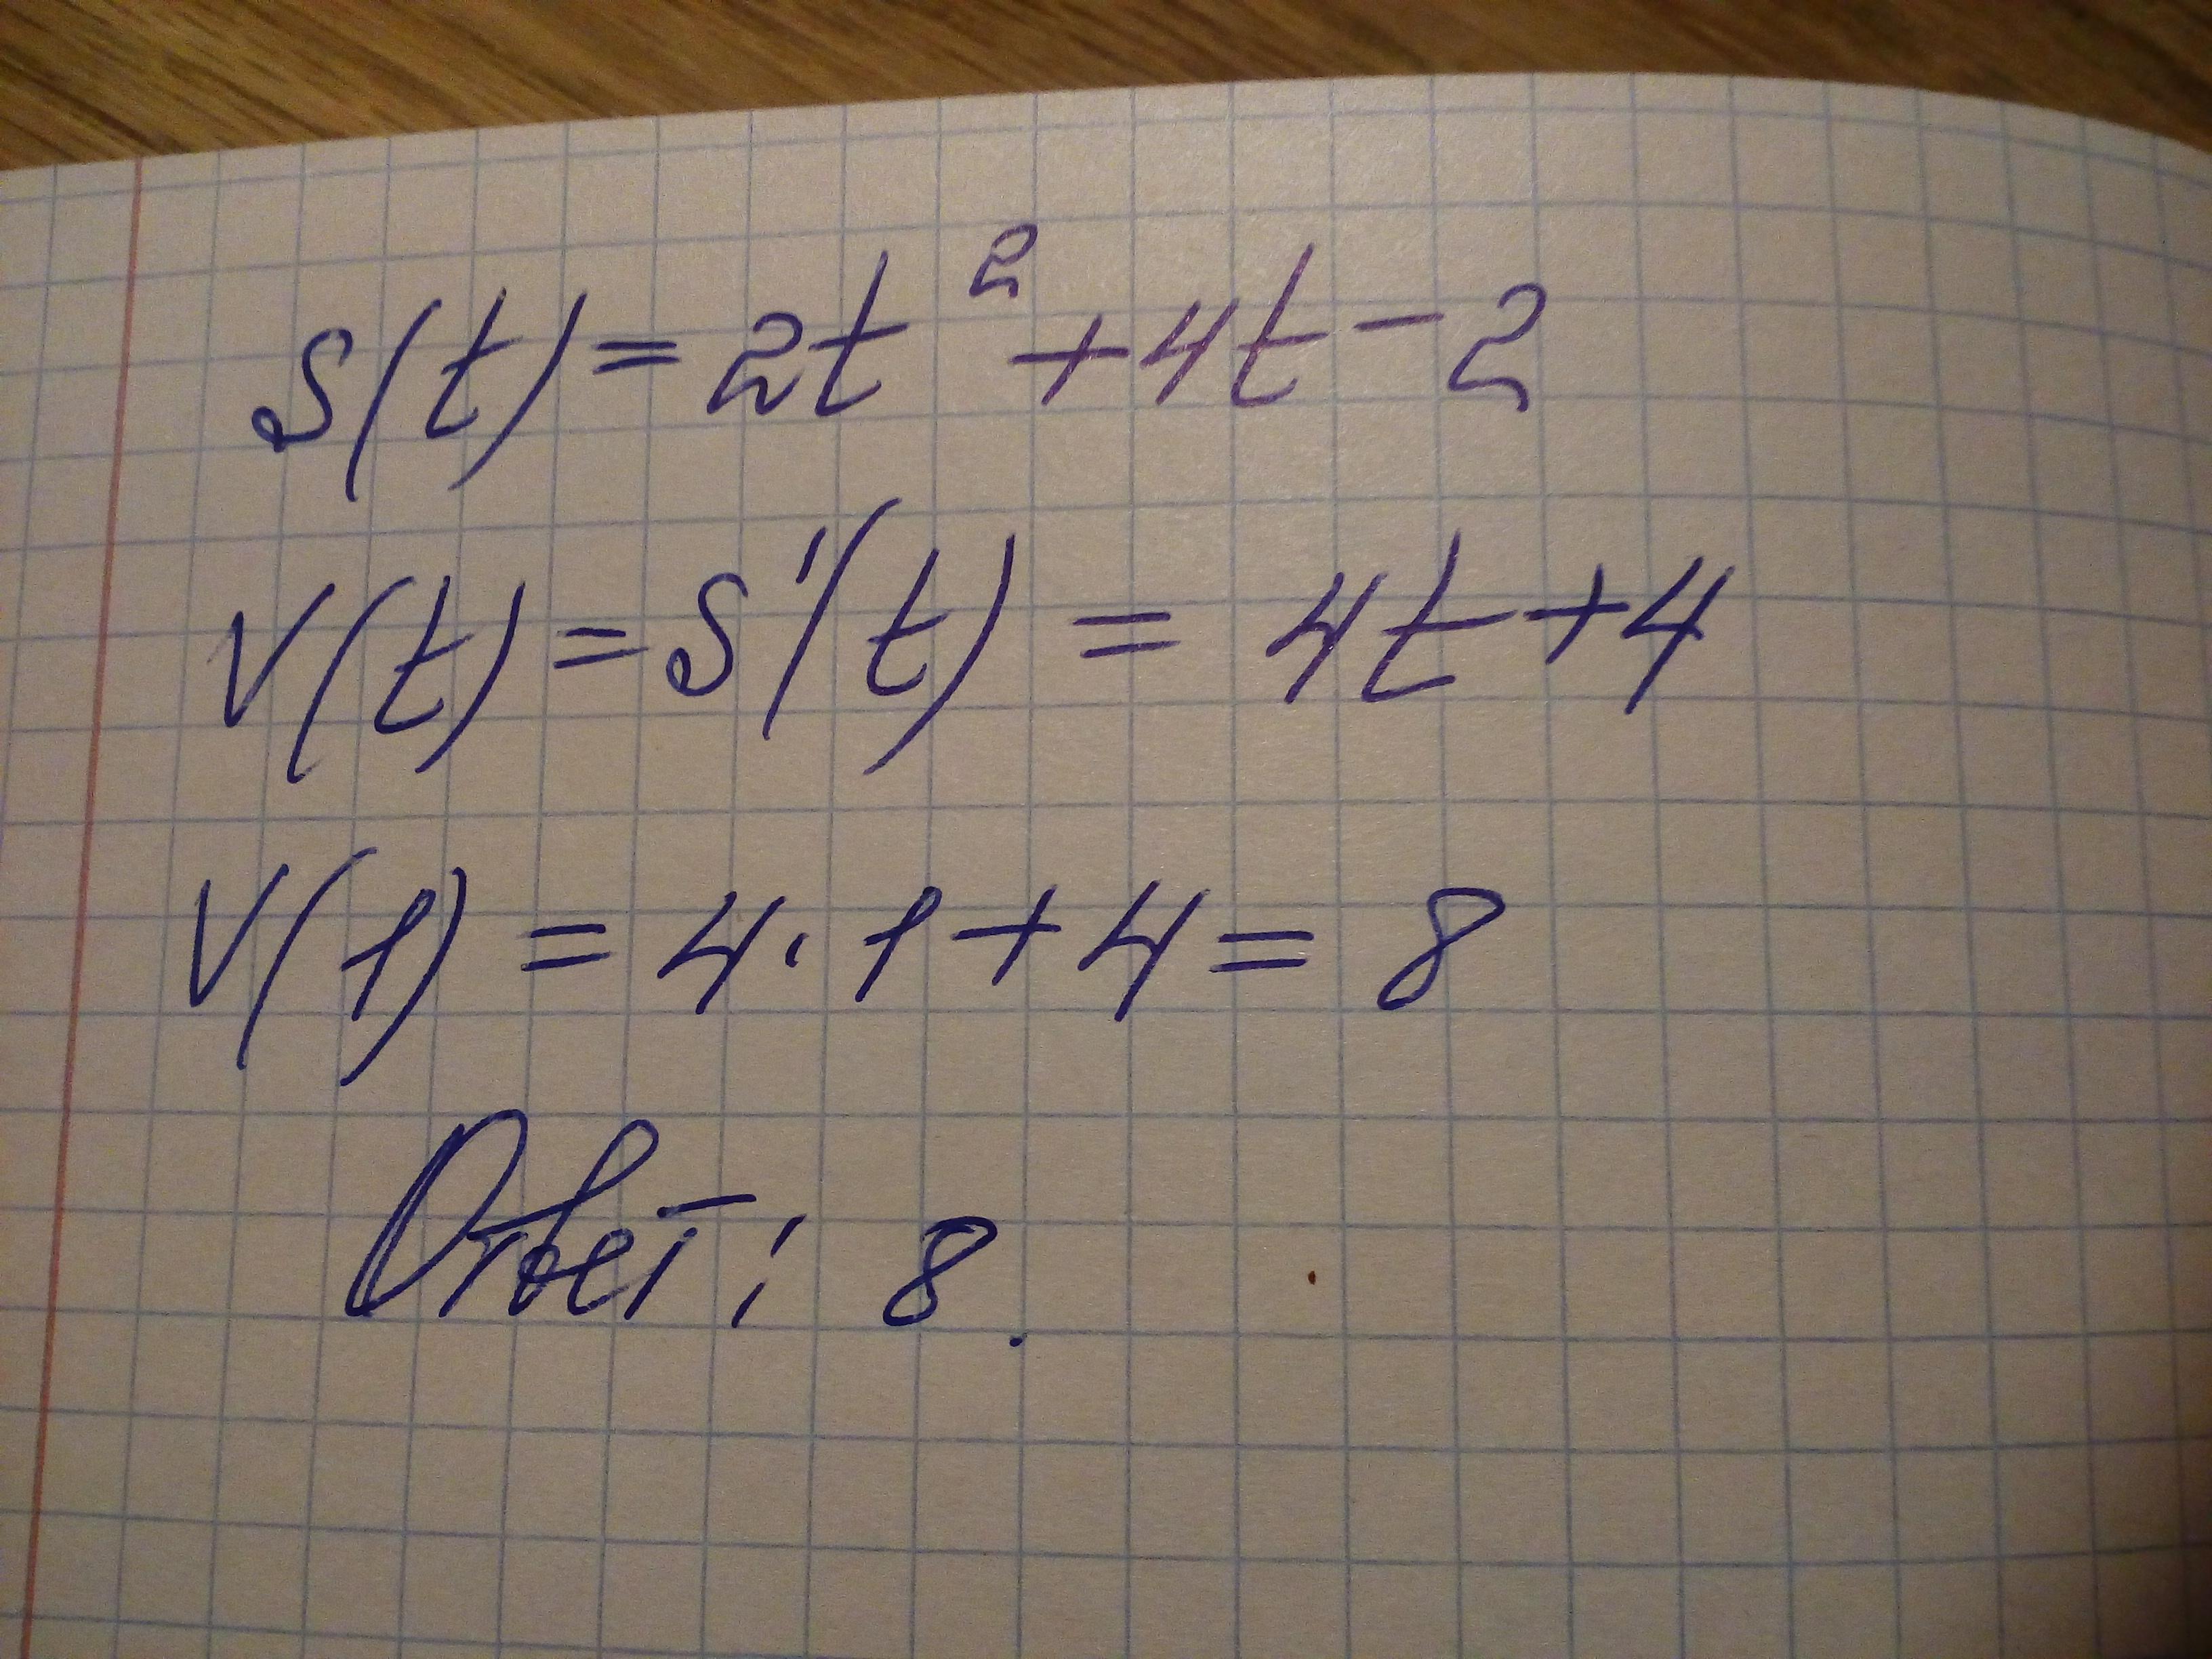 S(t) = 2t² + 4t - 2
V(t) = S'(t) = 4t + 4
V(1) = 4 · 1 + 4 = 8
Ответ: 8.